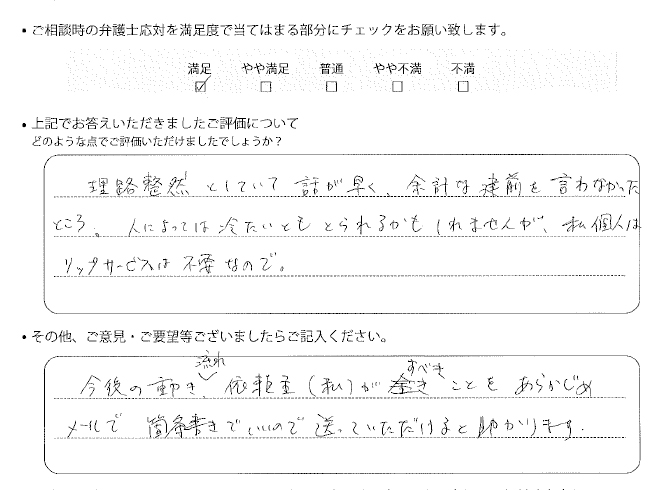 ・ご相談時の弁護士応対を満足度で当てはまる部分にチェックをお願い致します。
満足 やや満足 普通 やや不満 不満
☑ □ □ □ □
・上記でお答えいただきましたご評価について
どのような点でご評価いただけましたでしょうか？
理路整然としていて話が早く、余計な建前を言わなかった
ところ。人によっては冷たいともとられるかもしれませんが、私個人は
リップサービスは不要なので。
・その他、ご意見・ご要望等ございましたらご記入ください。
流れ すべき
今後の動き、依頼主（私）が ことをあらかじめ
メールで箇条書きでいいので送っていただけると助かります。